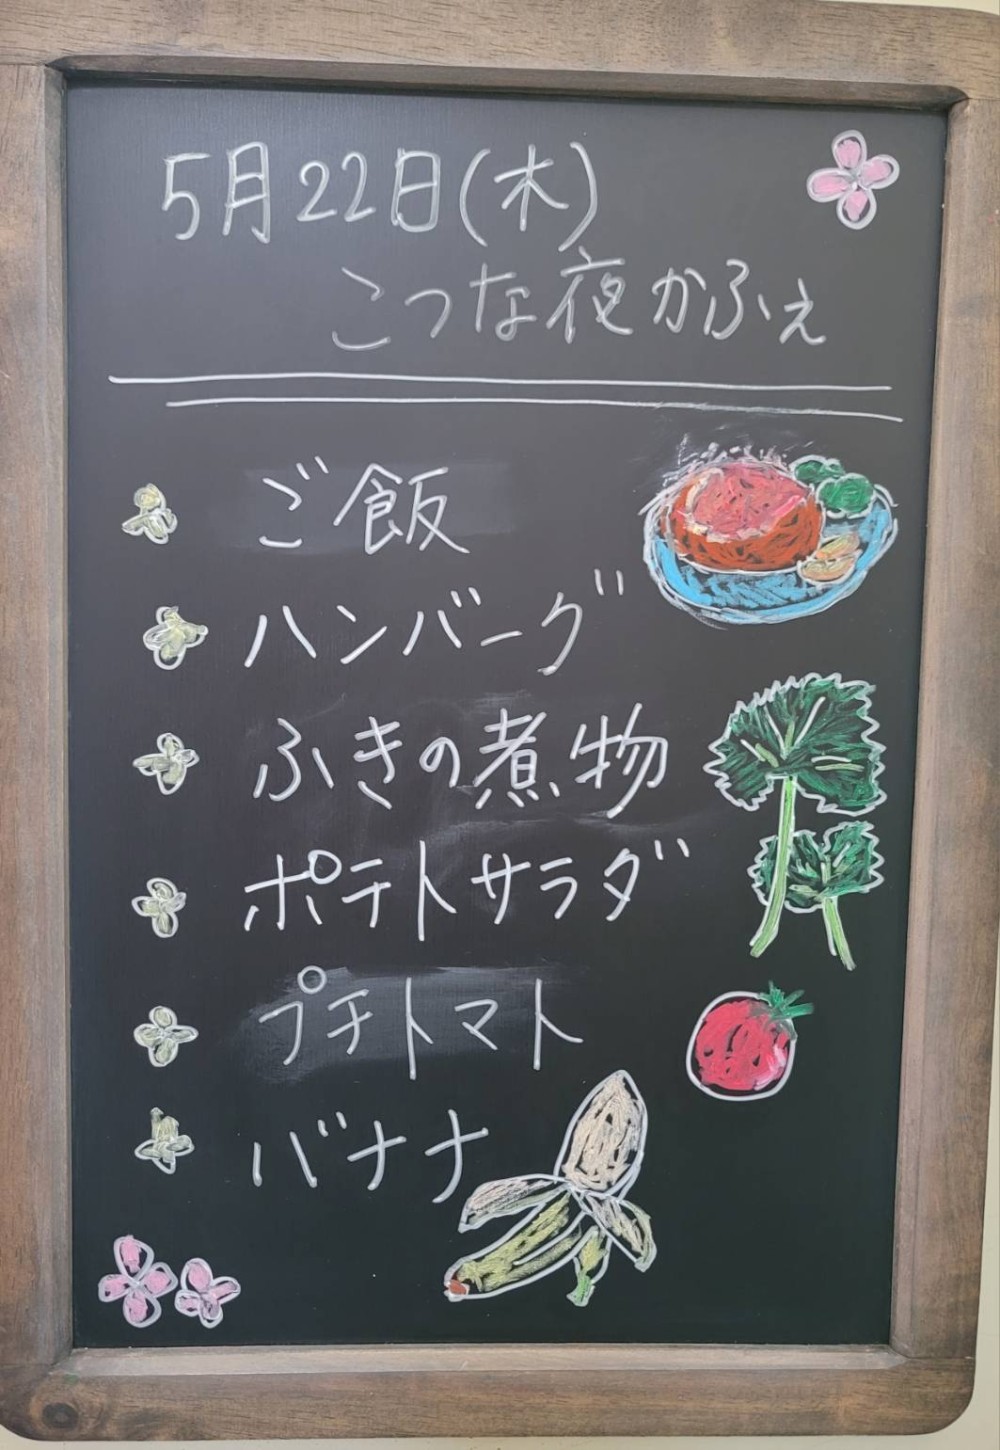 5月22日(木)
こつな夜かふぇ
ご飯
ハンバーグ
ふきの煮物
ポテトサラダ
プチトマト
バナナ